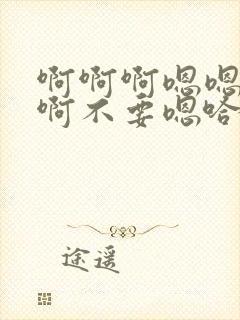 啊啊啊嗯嗯
啊不要嗯哈
途遥